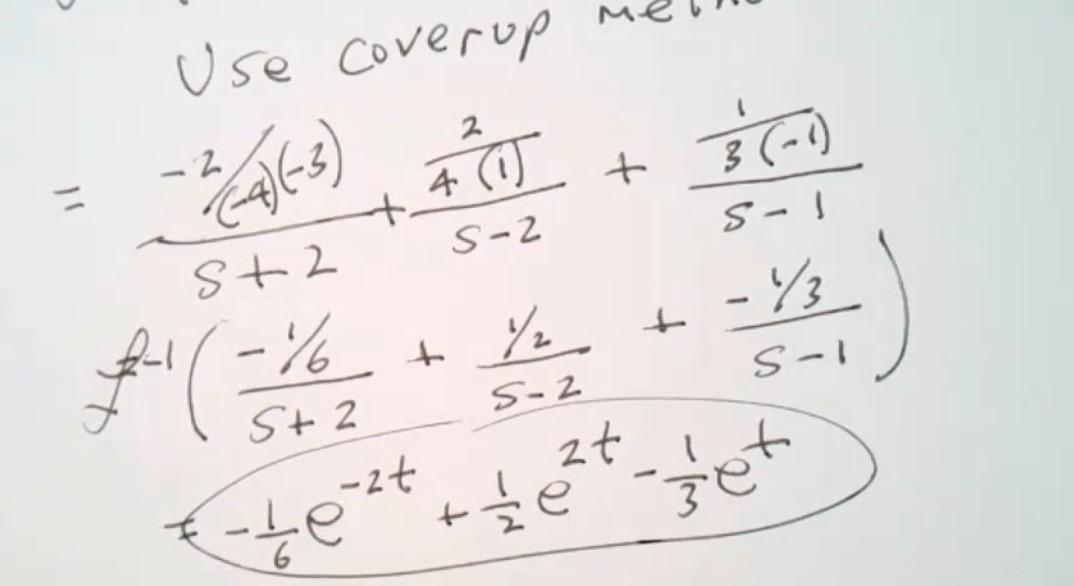 Use coverup
= -2/(-4)(-3) / s+2 + 2/4(1) / s-2 + 1/3(-1) / s-1
ℒ-1( -1/6 / s+2 + 1/2 / s-2 + -1/3 / s-1 )
= -1/6 e^-2t + 1/2 e^2t - 1/3 e^t